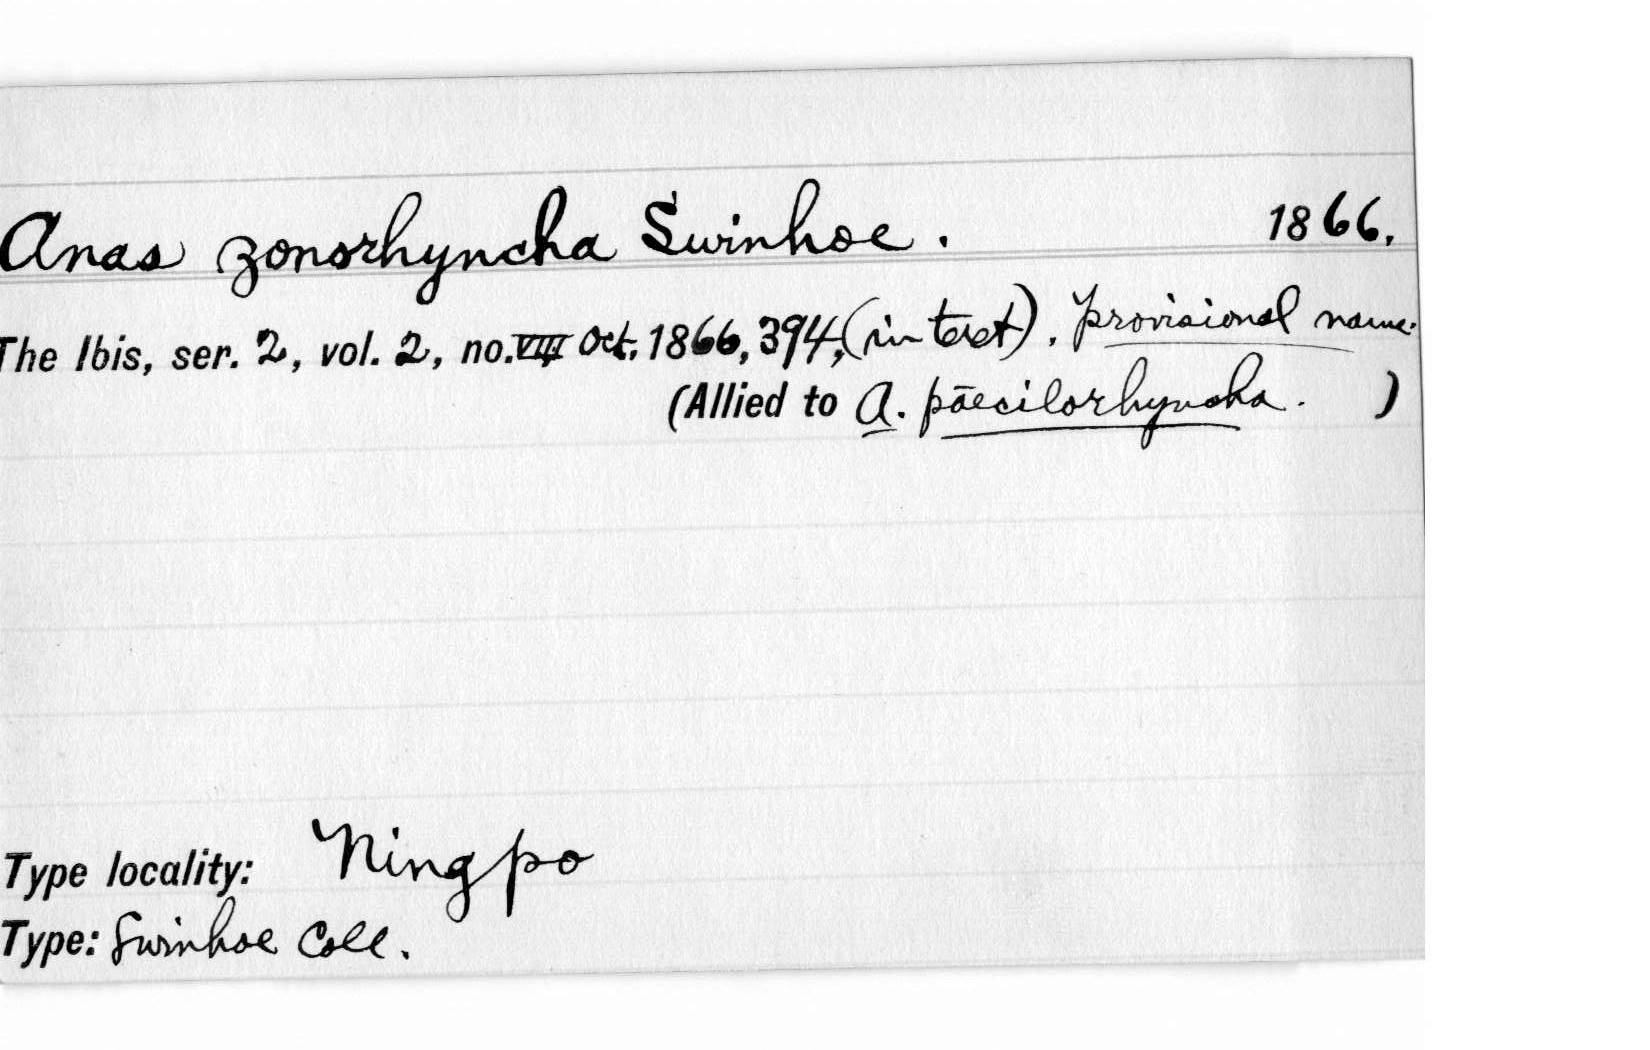 Anas zonorhyncha Swinhoe. 1866.
The Ibis, ser. 2, vol. 2, no. VIII Oct. 1866, 394, (in text). Provisional name.
(Allied to A. pāecilorhyncha. )
Type locality: Ningpo
Type: Swinhoe Coll.